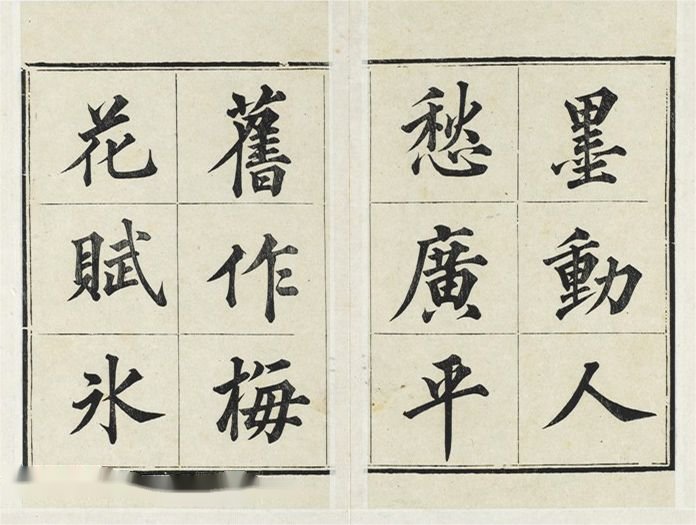 墨動人
愁廣平
舊作梅
花賦氷